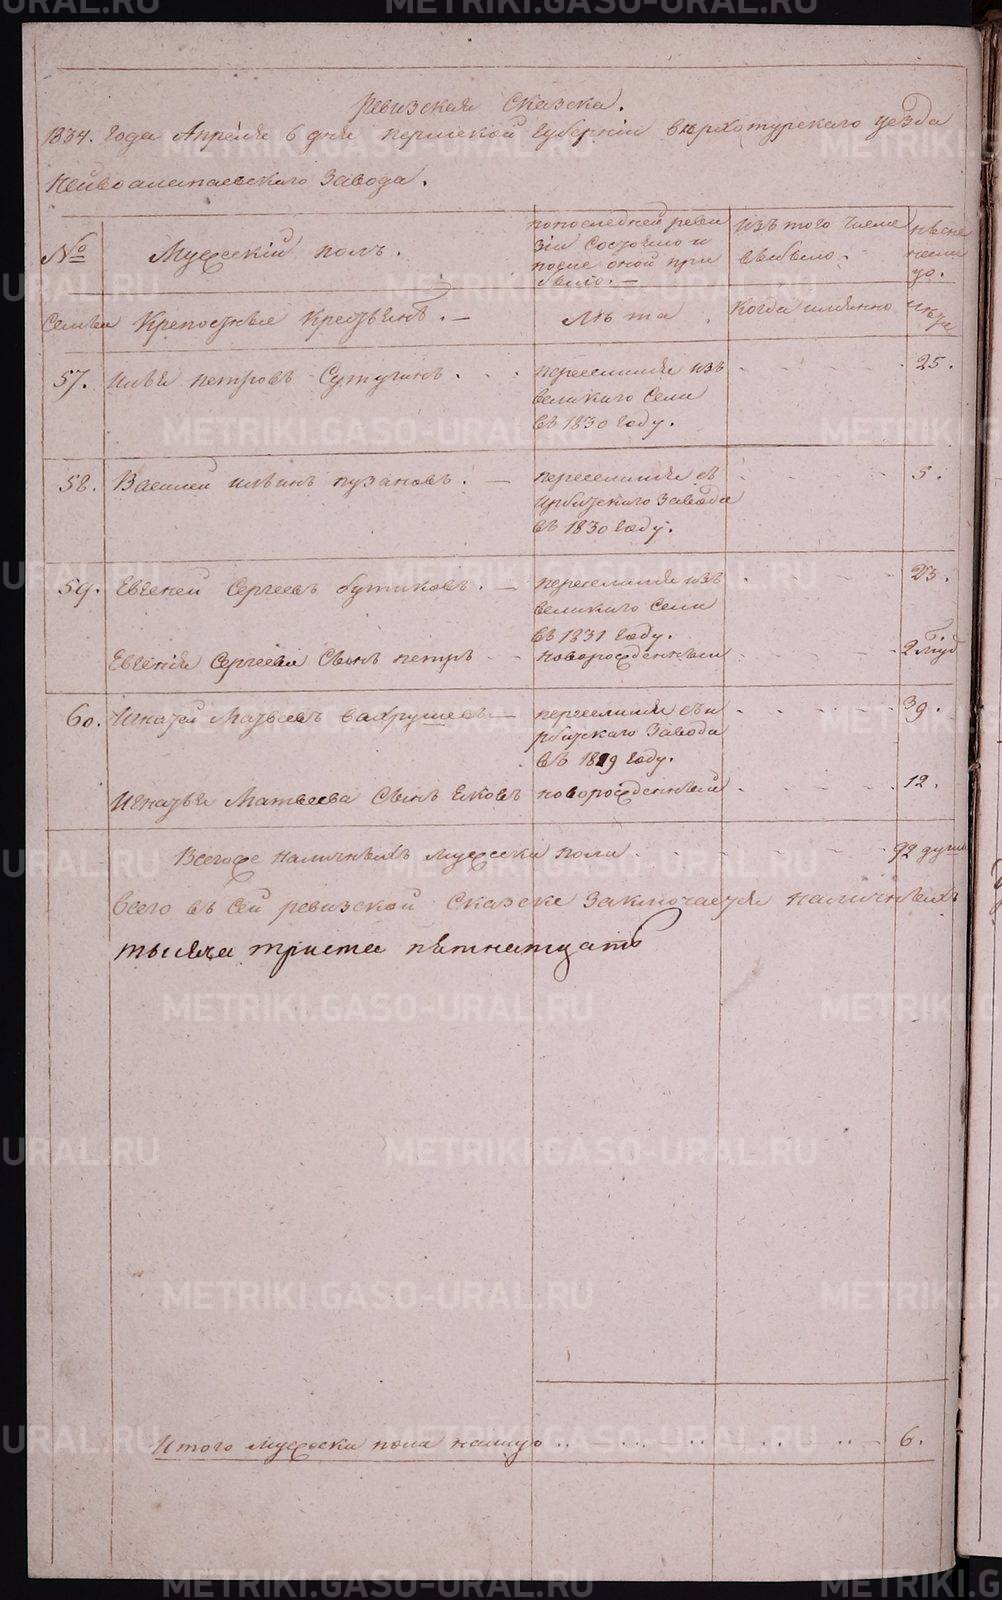 Ревизская Сказка.
1834. Года Апреля 6 дня Пермской Губернии Верхотурского уезда
Нейвоалапаевского Завода.
№ Мужескій полъ.
попоследней реви
зіи Состояло и
после оной при
было. —
изъ того числа
выбыло.
ныне
нали
цо.
Семьи Крепостные Крестьянѣ. —
Лѣта
Когда имянно
Лѣта
57. Илья Петровъ Сутугинъ
переселился изъ
великаго Села
въ 1830 году.
25.
58. Василей Ильинъ Пузановъ. —
переселился съ
Ирбитскаго Завода
въ 1830 году.
5.
59. Евгеней Сергеевъ бутаковъ. —
переселился изъ
великаго Села
въ 1831 году.
23.
Евгенія Сергеева Сынъ петръ
новорожденный
2
60. Игнатей Матвеевъ вахрушевъ —
переселился съ и
рбитскаго Завода
въ 1819 году.
39.
Игнатья Матвеева Сынъ Яковъ
новорожденный
12.
Всегоже наличныхъ мужеска пола
92 души
Всего въ Сей ревизской Сказске Заключается наличныхъ
тысяча триста пятнатцать
Итого мужеска пола налицо
6.
METRIKI.GASO-URAL.RU